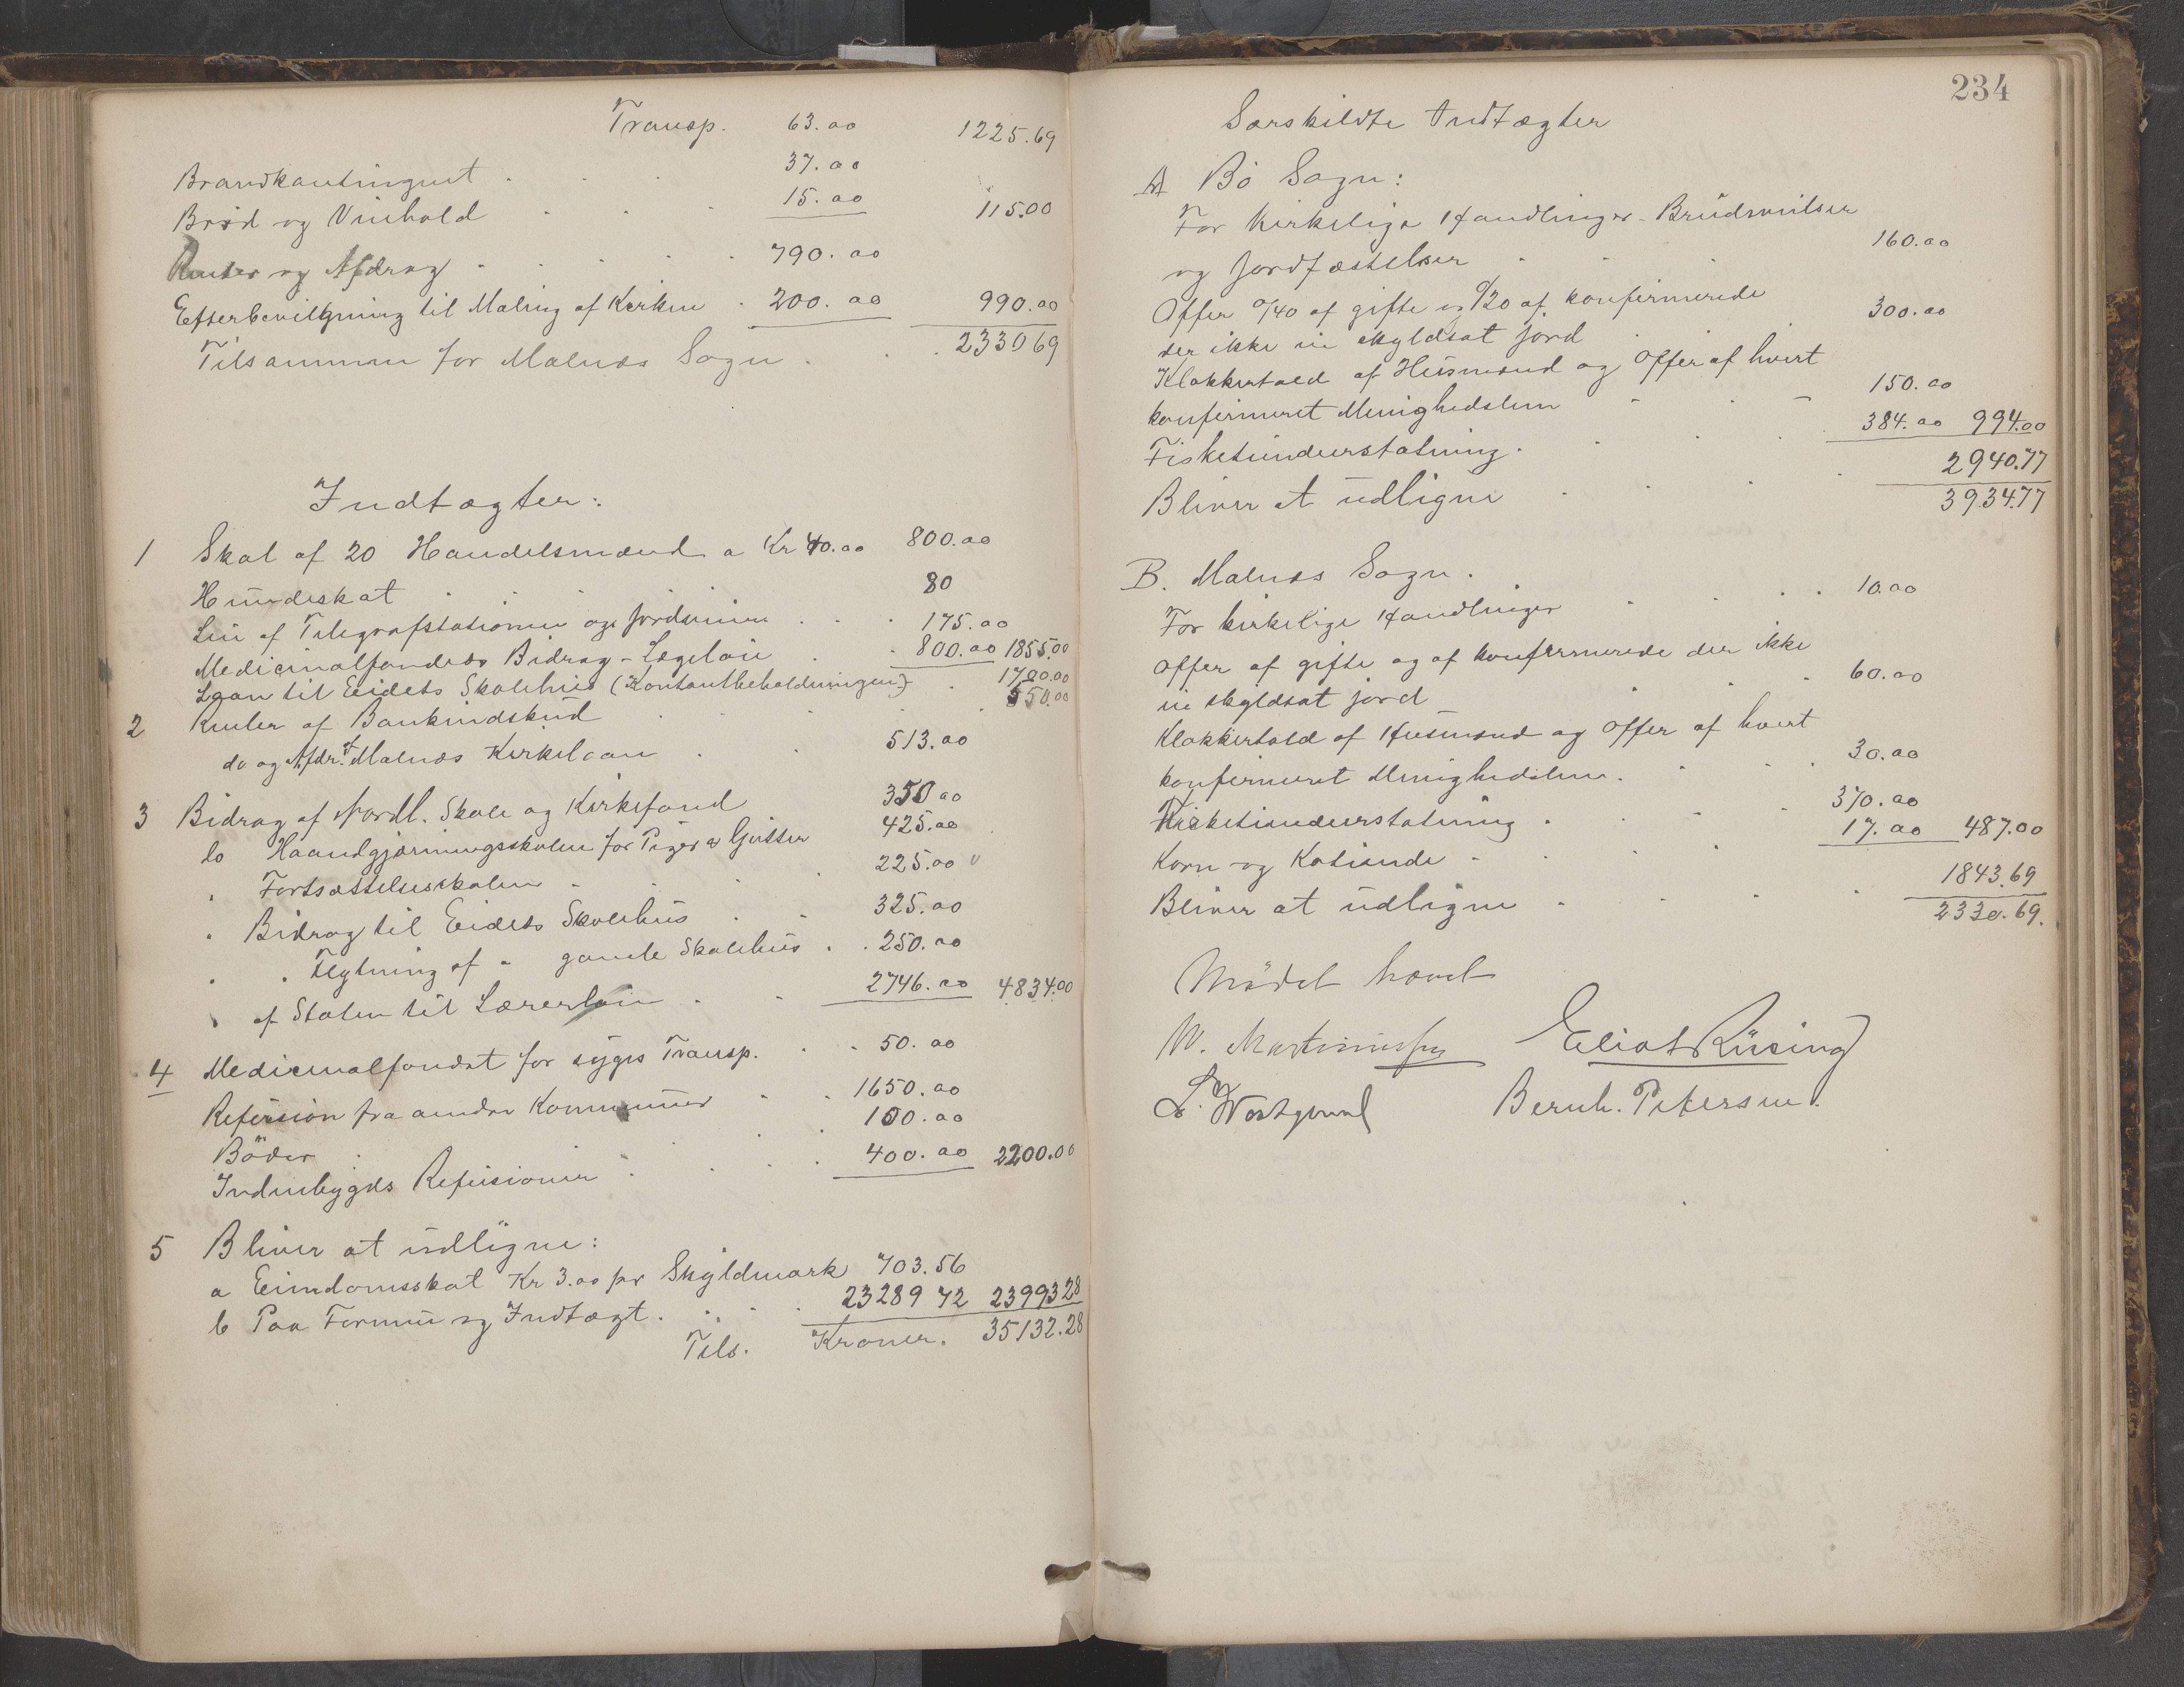 Transp. 63.00 1225.69
Brandkontingent . . . 37.00
Brød og Vinhold . . . 15.00 115.00
Renter og Afdrag . . . . 790.00
Efterbevilgning til Maling af Kirken . 200.00 990.00
Tilsammen for Malnes Sogn . . . 2330 69
Indtægter:
1 Skat af 20 Handelsmænd a Kr 40.00 800.00
Hundeskat . . . . 80
Leie af Telegrafstationen og Jordveien . . . 175.00
Medicinalfondets Bidrag - Lægeløn . . 800.00 1855.00
Laan til Eidets Skolehus (Kontantbeholdningen) . 1700.00
2 Renter af Bankindskud . . . . 550.00
do og Afdr. f Malnes Kirkelaan . . 513.00
3 Bidrag af Nordl. Skole og Kirkefond 350 00
do Haandgjærningsskolen for Piger & Gutter 425.00
" Fortsættelsesskolen . . . 225.00
" Bidrag til Eidets Skolehus . . 325.00
" " Flytning af " gamle Skolehus . . 250.00
" af Staten til Lærerløn . . 2746.00 4834.00
4 Medicinalfondet for syges Transp. . . 50.00
Refusion fra andre Kommuner . . 1650.00
Bøder . . . 100.00
Indenbygds Refusioner . . . . 400.00 2200.00
5 Bliver at udligne:
a Eiendomsskat Kr 3.00 pr Skyldmark 703.56
b Paa Formue og Indtægt . . . . 23289 72 23993 28
Tils. Kroner. 35132.28
234
Særskildte Indtægter
A Bø Sogn:
For Kirkelige Handlinger - Brudevielser
og Jordfæstelser . . . 160.00
Offer 0/40 af gifte og 0/20 af konfirmerede
der ikke eie skyldsat Jord . 300.00
Klokkertold af Husmænd og Offer af hvert
konfirmeret Menighedslem . . - 150.00
Fisketiendeerstatning . . . . 384.00 994.00
Bliver at udligne . . . . 2940.77
3934.77
B. Malnes Sogn.
For kirkelige Handlinger . . . . 10.00
Offer af gifte og af konfirmerede der ikke
eie skyldsat Jord . . . 60.00
Klokkertold af Husmænd og Offer af hvert
konfirmeret Menighedslem . . . 30.00
Fisketiendeerstatning . . . . 370.00
Korn og Kotiende . . . . 17.00 487.00
Bliver at udligne . . . . 1843.69
2330.69.
Mødet hævet
M. Martinussen Eliot Rüsing
L. Bernh. Petersen.